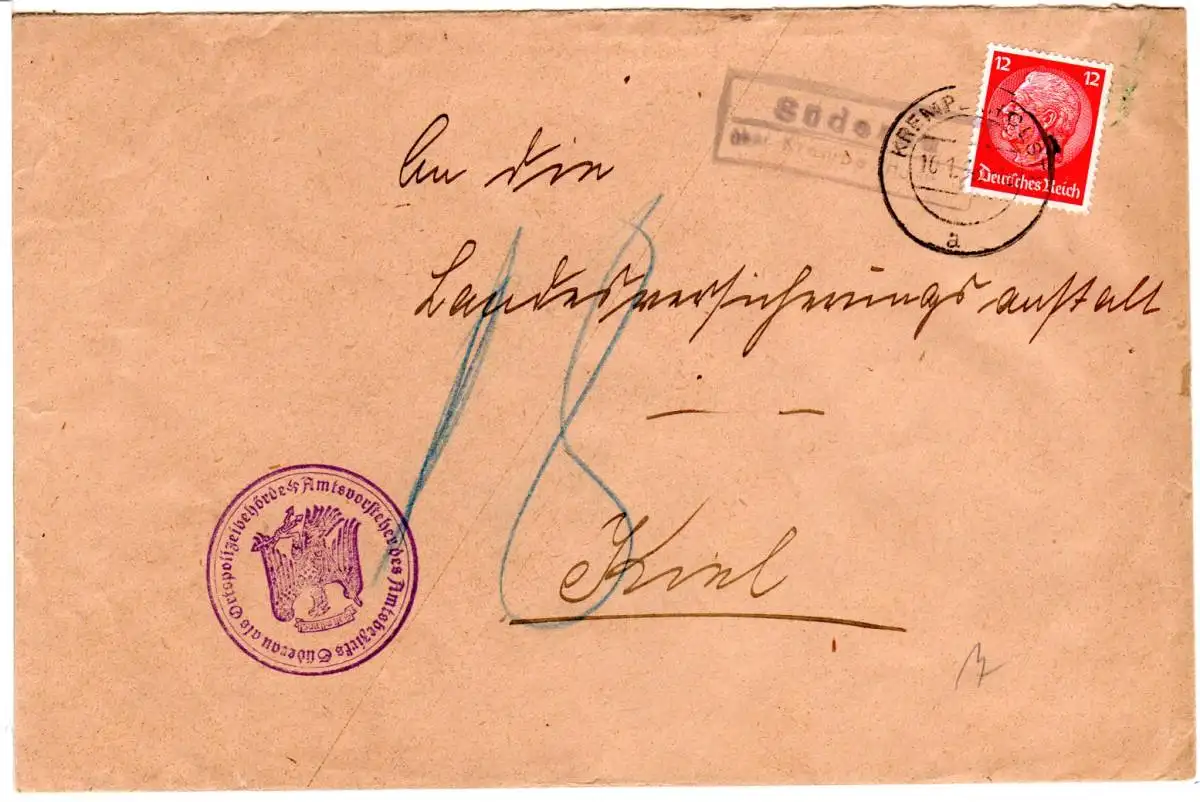 Süder
über Krempe
KREMPE (HOLST
16.1.
a
12 12
Deutsches Reich
An die
Landesversicherungsanstalt
Kiel
18
Amtsvorsteher des Amtsbezirks Süderau als Ortspolizeibehörde